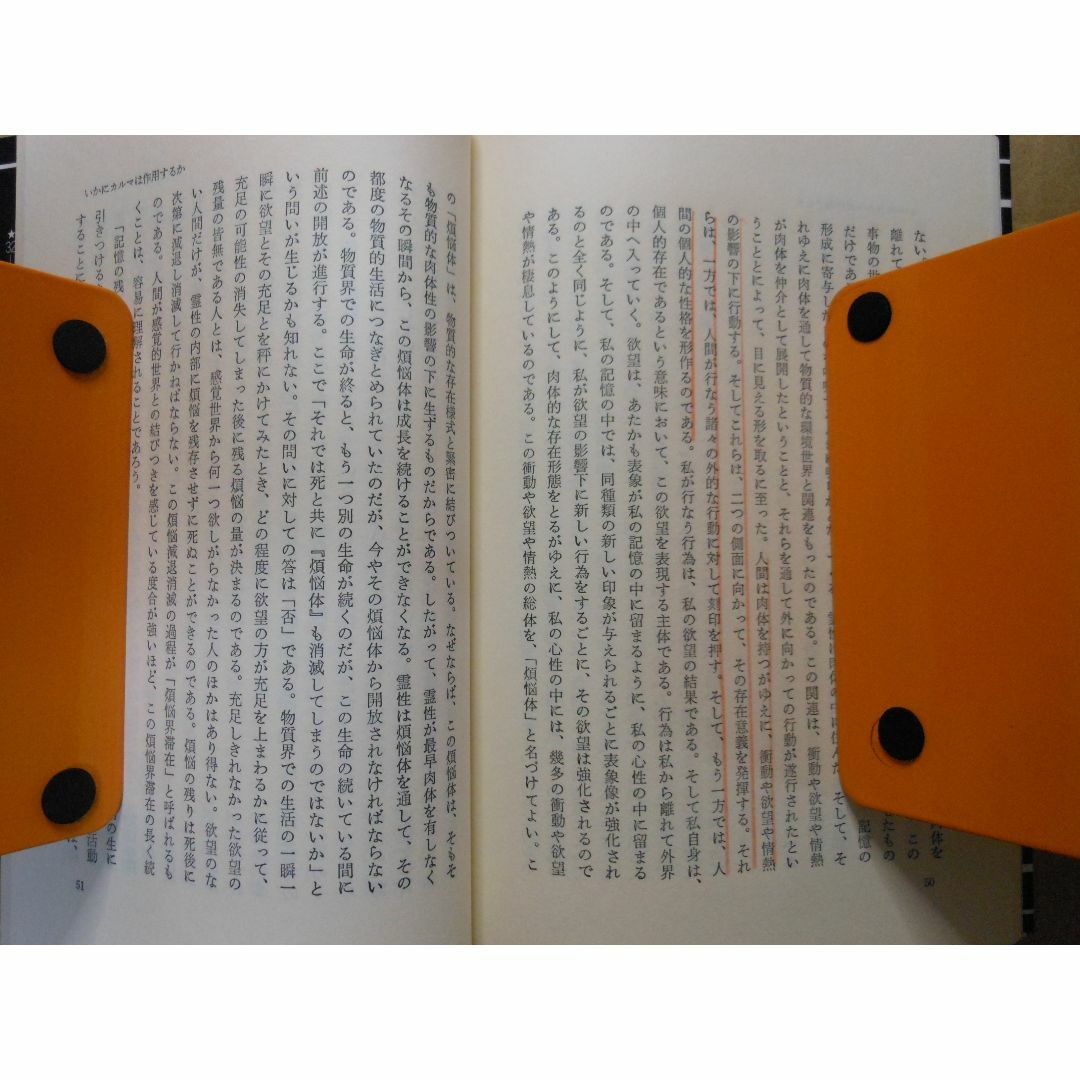 ない
体を
離れて
この
事物の世
たもの
だけであ
記憶の
形成に寄与した
そして、そ
れゆえに肉体を通して物質的な環境世界と関連をもったのである。この関連は、衝動や欲望や情熱
が肉体を仲介として展開したということと、それらを通して外に向かっての行動が遂行されたとい
うこととによって、目に見える形を取るに至った。人間は肉体を持つがゆえに、衝動や欲望や情熱
の影響の下に行動する。そしてこれらは、二つの側面に向かって、その存在意義を発揮する。それ
らは、一方では、人間が行なう諸々の外的な行動に対して刻印を押す。そして、もう一方では、人
間の個人的な性格を形作るのである。私が行なう行為は、私の欲望の結果である。そして私自身は、
個人的存在であるという意味において、この欲望を表現する主体である。行為は私から離れて外界
の中へ入っていく。欲望は、あたかも表象が私の記憶の中に留まるように、私の心性の中に留まる
のである。そして、私の記憶の中では、同種類の新しい印象が与えられるごとに表象像が強化され
るのと全く同じように、私が欲望の影響下に新しい行為をするごとに、その欲望は強化されるので
ある。このようにして、肉体的な存在形態をとるがゆえに、私の心性の中には、幾多の衝動や欲望
や情熱が棲息しているのである。この衝動や欲望や情熱の総体を、「煩悩体」と名づけてよい。こ
50
の「煩悩体」は、物質的な存在様式と緊密に結びついている。なぜならば、この煩悩体は、そもそ
も物質的な肉体性の影響の下に生ずるものだからである。したがって、霊性が最早肉体を有しなく
なるその瞬間から、この煩悩体は成長を続けることができなくなる。霊性は煩悩体を通して、その
都度の物質的生活につなぎとめられていたのだが、今やその煩悩体から開放されなければならない
のである。物質界での生命が終ると、もう一つ別の生命が続くのだが、この生命の続いている間に
前述の開放が進行する。ここで「それでは死と共に『煩悩体』も消滅してしまうのではないか」と
いう問いが生じるかも知れない。その問いに対しての答は「否」である。物質界での生活の一瞬一
瞬に欲望とその充足とを秤にかけてみたとき、どの程度に欲望の方が充足を上まわるかに従って、
充足の可能性の消失してしまった後に残る煩悩の量が決まるのである。充足しきれなかった欲望の
残量の皆無である人とは、感覚世界から何一つ欲しがらなかった人のほかはあり得ない。欲望のな
い人間だけが、霊性の内部に煩悩を残存させずに死ぬことができるのである。煩悩の残りは死後に
次第に減退し消滅して行かねばならない。この煩悩減退消滅の過程が「煩悩界滞在」と呼ばれるも
のである。人間が感覚的世界との結びつきを感じている度合が強いほど、この煩悩界滞在の長く続
くことは、容易に理解されることであろう。
「記憶の残
の生に
引きつける
活動
することに
は、
いかにカルマは作用するか
51